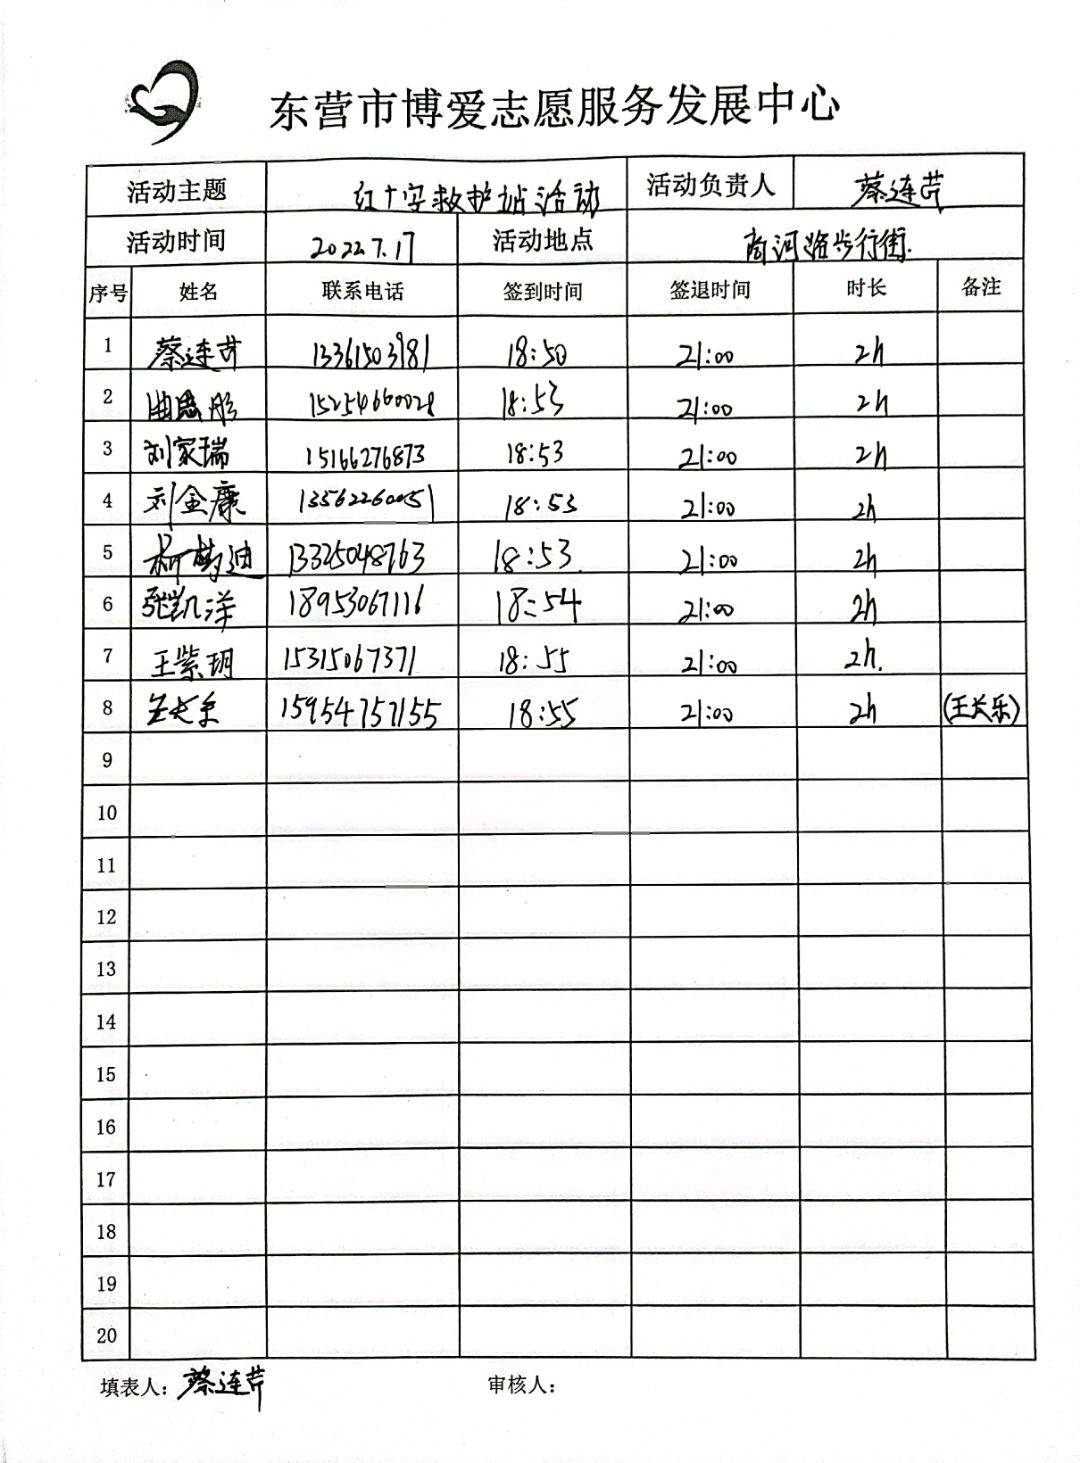 东营市博爱志愿服务发展中心
活动主题 红十字救护站活动 活动负责人 蔡连芹
活动时间 2022.7.17 活动地点 商河路步行街.
序号 姓名 联系电话 签到时间 签退时间 时长 备注
1 蔡连芹 13361503981 18:50 21:00 2h
2 曲思彤 15254660028 18:53 21:00 2h
3 刘家瑞 15166276873 18:53 21:00 2h
4 刘金康 13562260051 18:53 21:00 2h
5 迪 13325048763 18:53 21:00 2h
6 张凯洋 18953067116 18:54 21:00 2h
7 王紫玥 15315067371 18:55 21:00 2h.
8 王长乐 15954757155 18:55 21:00 2h (王长乐)
9
10
11
12
13
14
15
16
17
18
19
20
填表人：蔡连芹 审核人：